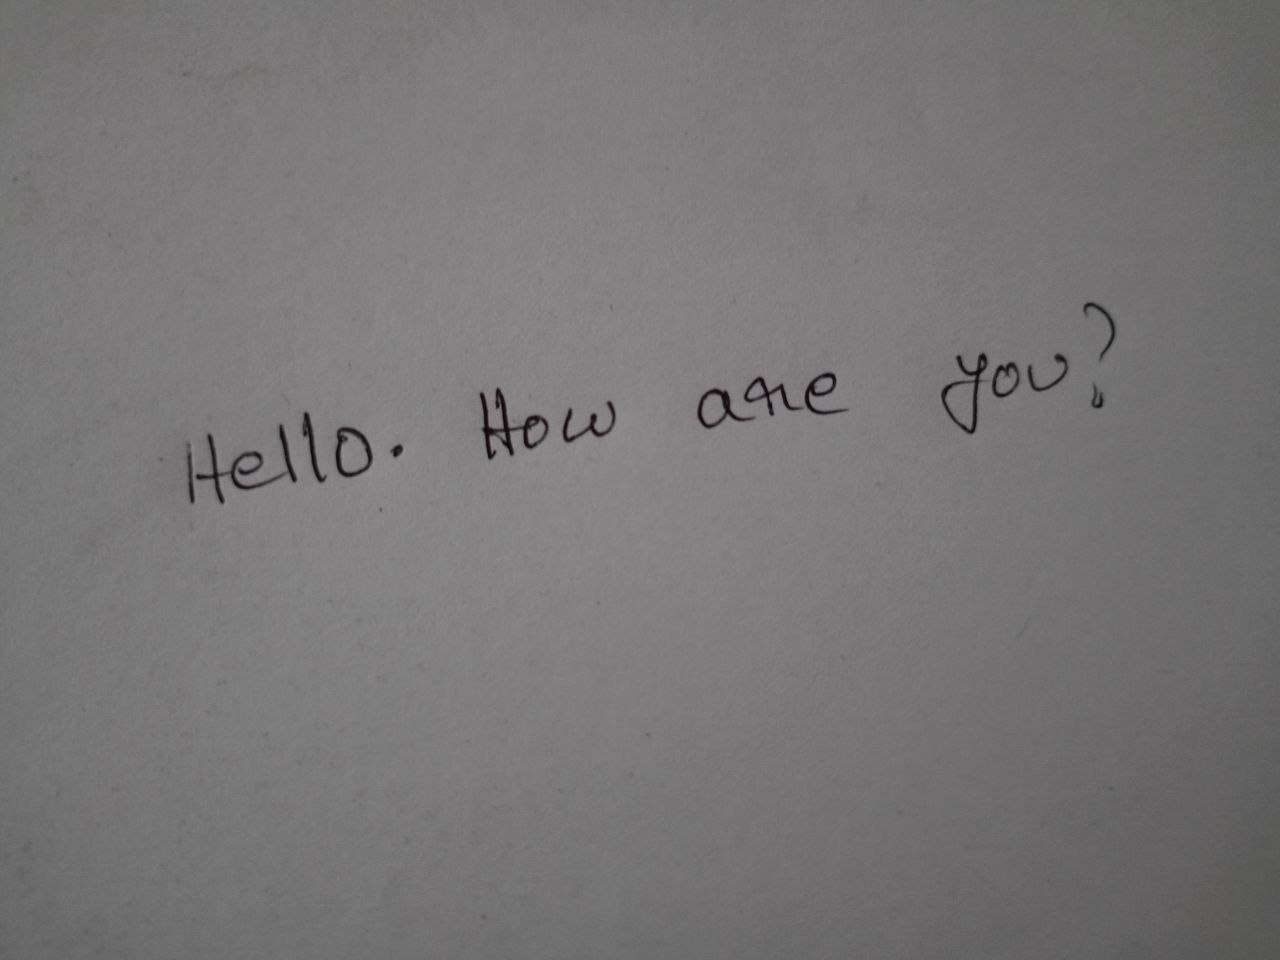 Hello. How are you?